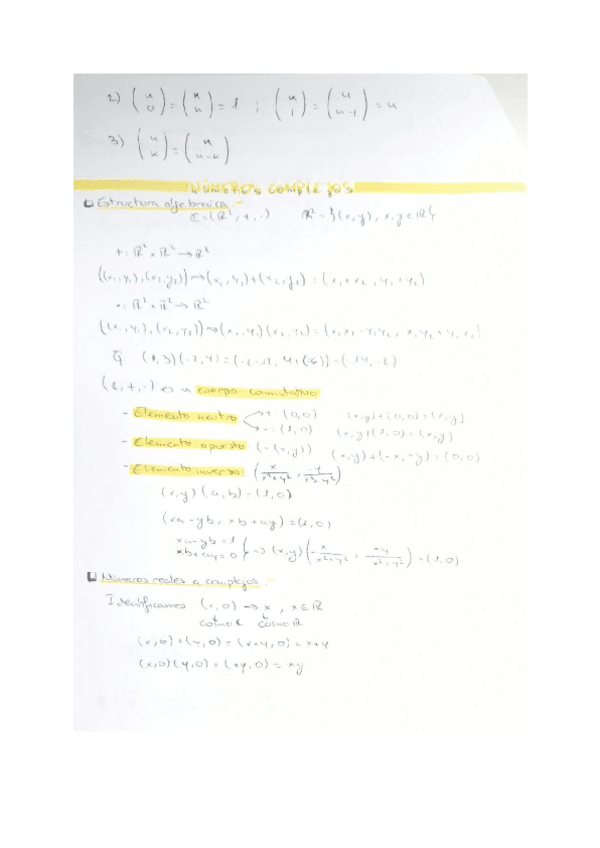 2) (n 0) = (n n) = 1 ; (n 1) = (n n-1) = n
3) (n k) = (n n-k)
NÚMEROS COMPLEJOS
Estructura algebraica.-
ℂ = (ℝ², +, ·) ℝ² = {(x,y), x,y ∈ ℝ}
+: ℝ² × ℝ² → ℝ²
((x₁,y₁),(x₂,y₂)) → (x₁,y₁)+(x₂,y₂) = (x₁+x₂, y₁+y₂)
·: ℝ² × ℝ² → ℝ²
((x₁,y₁),(x₂,y₂)) → (x₁,y₁)(x₂,y₂) = (x₁x₂-y₁y₂, x₁y₂+y₁x₂)
(ℂ,+,·) es un cuerpo conmutativo
- Elemento neutro +: (0,0) (x,y)+(0,0)=(x,y)
·: (1,0) (x,y)(1,0)=(x,y)
- Elemento opuesto (-(x,y)) (x,y)+(-x,-y)=(0,0)
- Elemento inverso: (x/(x²+y²), -y/(x²+y²))
(x,y)(a,b)=(1,0)
(xa-yb, xb+ay)=(1,0)
xa-yb=1
xb+ay=0
Números reales a complejos.-
Identificamos (x,0) → x, x∈ℝ
como ℂ como ℝ
(x,0)+(y,0)=(x+y,0)=x+y
(x,0)(y,0)=(xy,0)=xy